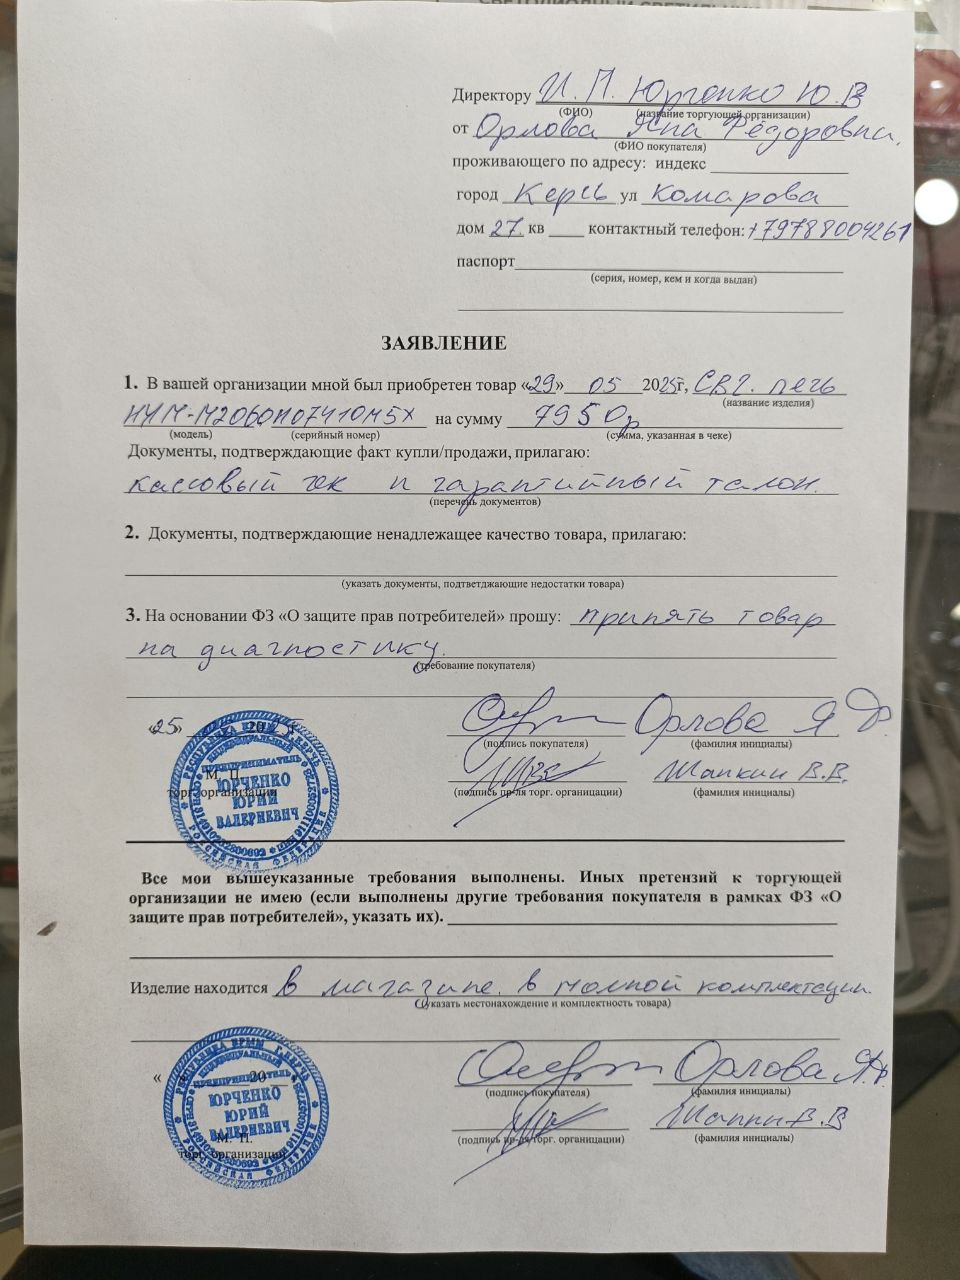 Директору И. П. Юрченко Ю.В
(ФИО) (название торгующей организации)
от Орлова Яна Фёдоровна.
(ФИО покупателя)
проживающего по адресу: индекс
город Керчь ул Комарова
дом 27. кв контактный телефон: +79788004261
паспорт
(серия, номер, кем и когда выдан)
ЗАЯВЛЕНИЕ
1. В вашей организации мной был приобретен товар «29» 05 2025г, СВЧ. печь
(название изделия)
HYM-M2060 на сумму 7950р
(модель) (серийный номер) (сумма, указанная в чеке)
Документы, подтверждающие факт купли/продажи, прилагаю:
кассовый чек и гарантийный талон.
(перечень документов)
2. Документы, подтверждающие ненадлежащее качество товара, прилагаю:
(указать документы, подтветджающие недостатки товара)
3. На основании ФЗ «О защите прав потребителей» прошу: принять товар
на диагностику.
(требование покупателя)
«25» 2025г Орлова Я Ф
(подпись покупателя) (фамилия инициалы)
М. П. Шапкин В.В.
торг. организации (подпись пр-ля торг. органицации) (фамилия инициалы)
РЕСПУБЛИКА КРЫМ Г.КЕРЧЬ
ИНДИВИДУАЛЬНЫЙ
ПРЕДПРИНИМАТЕЛЬ
ЮРЧЕНКО
ЮРИЙ
ВАЛЕРИЕВИЧ
РОССИЙСКАЯ ФЕДЕРАЦИЯ
Все мои вышеуказанные требования выполнены. Иных претензий к торгующей
организации не имею (если выполнены другие требования покупателя в рамках ФЗ «О
защите прав потребителей», указать их).
Изделие находится в магазине. в полной комплектации.
(указать местонахождение и комплектность товара)
« 20 Орлова Я.Ф.
(подпись покупателя) (фамилия инициалы)
М. П. Шапкин В.В
торг. организации (подпись пр-ля торг. органицации) (фамилия инициалы)
РЕСПУБЛИКА КРЫМ Г.КЕРЧЬ
ИНДИВИДУАЛЬНЫЙ
ПРЕДПРИНИМАТЕЛЬ
ЮРЧЕНКО
ЮРИЙ
ВАЛЕРИЕВИЧ
РОССИЙСКАЯ ФЕДЕРАЦИЯ